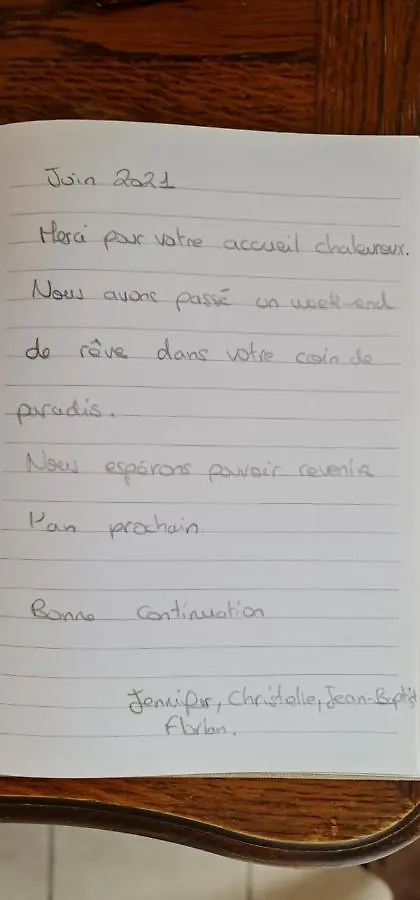 Juin 2021
Merci pour votre accueil chaleureux.
Nous avons passé un week-end
de rêve dans votre coin de
paradis.
Nous espérons pouvoir revenir
l'an prochain
Bonne continuation
Jennifer, Christelle, Jean-Baptist
Florian.